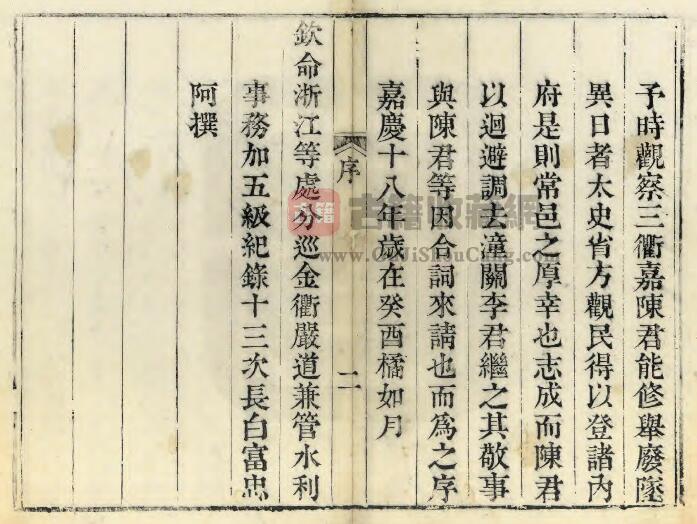 予時觀察三衢嘉陳君能修舉廢墜
異日者太史省方觀民得以登諸內
府是則常邑之厚幸也志成而陳君
以迴避調去潼關李君繼之其敬事
與陳君等因合詞來請也而爲之序
嘉慶十八年歲在癸酉橘如月
序
二
欽命浙江等處分巡金衢嚴道兼管水利
事務加五級紀錄十三次長白富忠
阿撰
古籍收藏網
www.GuJiShouCang.com